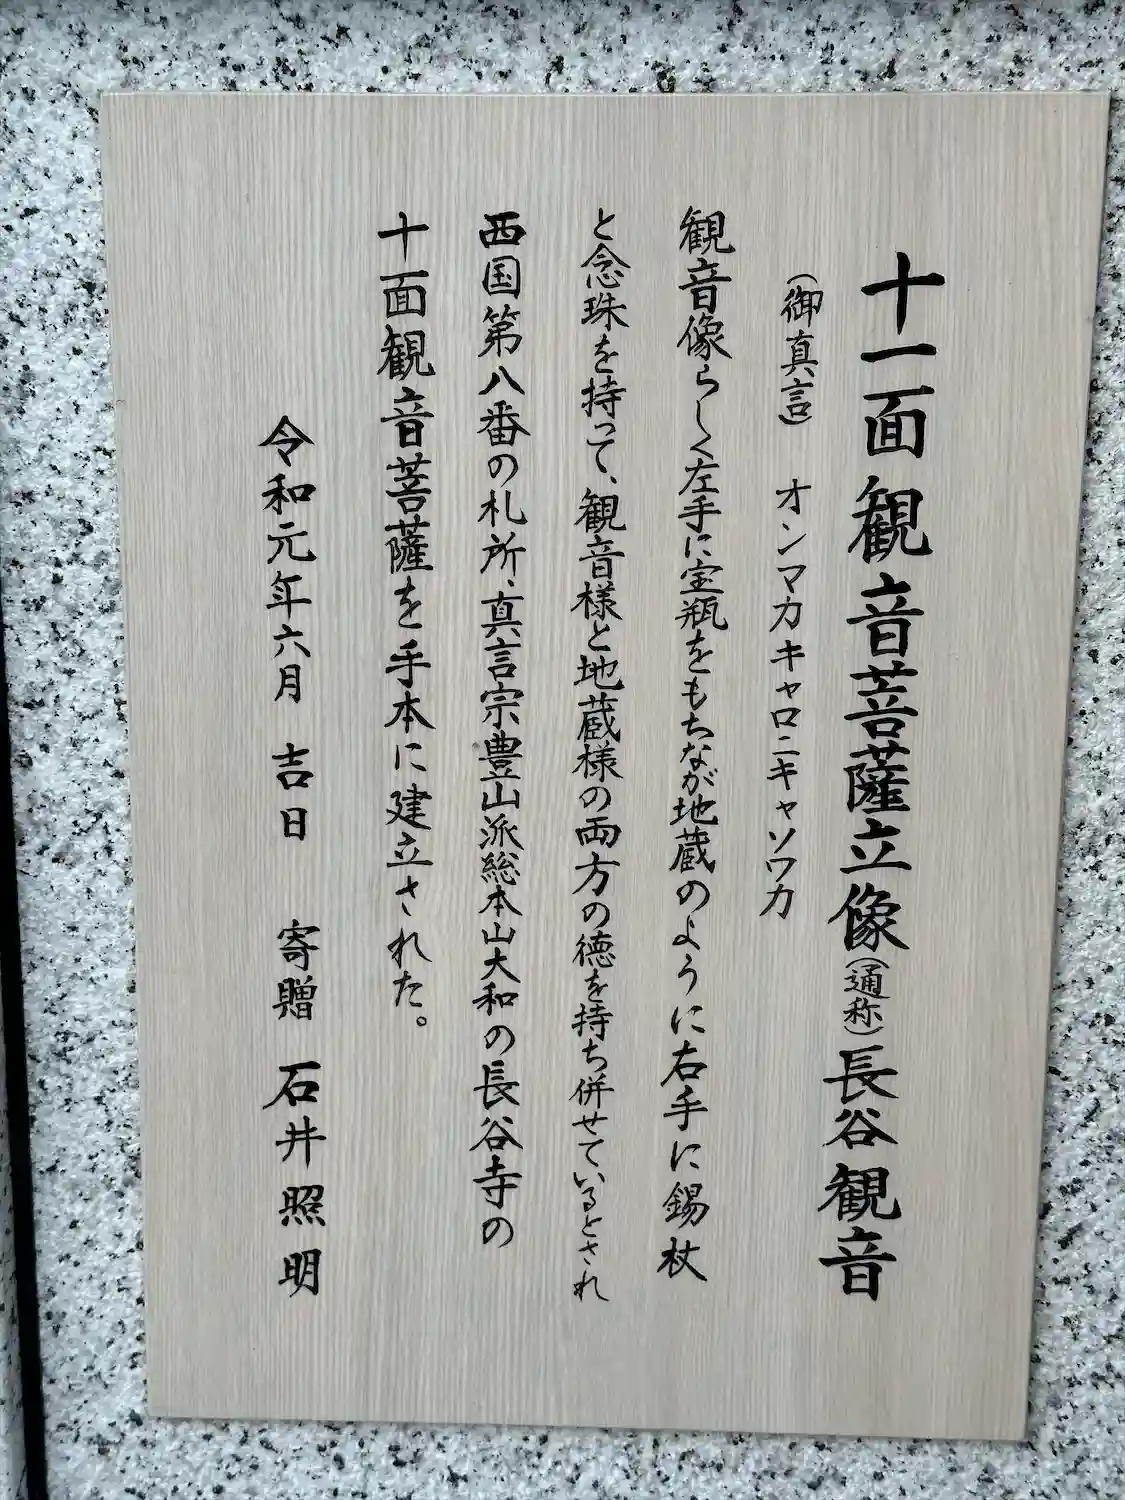 十一面観音菩薩立像(通称)長谷観音
(御真言) オンマカキャロニキャソワカ
観音像らしく左手に宝瓶をもちなが地蔵のように右手に錫杖
と念珠を持って、観音様と地蔵様の両方の徳を持ち併せているとされ
西国第八番の札所、真言宗豊山派総本山大和の長谷寺の
十面観音菩薩を手本に建立された。
令和元年六月 吉日 寄贈 石井照明